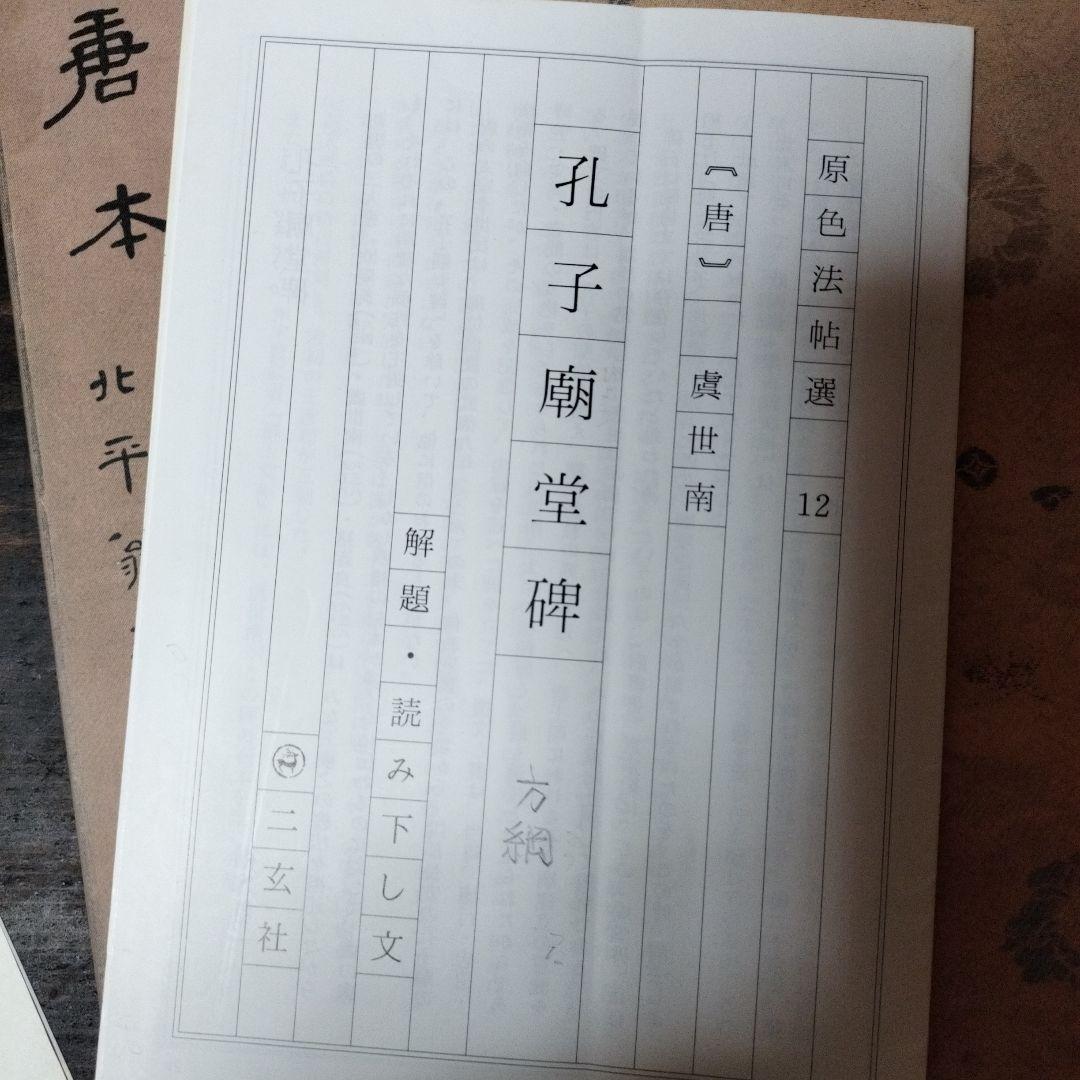 原色法帖選 12
〘唐〙 虞世南
孔子廟堂碑
方綱
解題・読み下し文
二玄社
唐本
北平翁